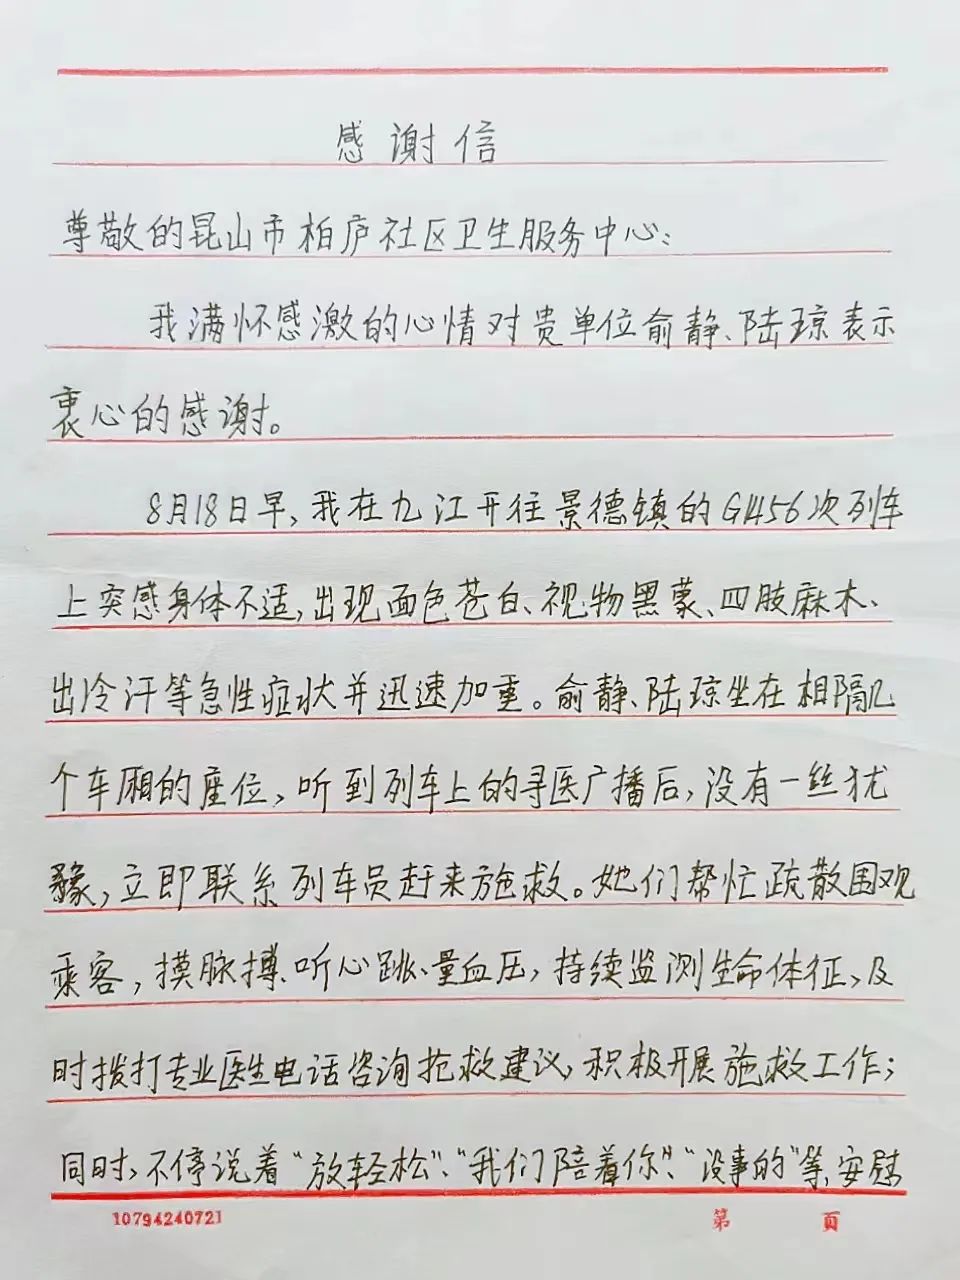 感谢信
尊敬的昆山市柏庐社区卫生服务中心：
我满怀感激的心情对贵单位俞静、陆琼表示
衷心的感谢。
8月18日早，我在九江开往景德镇的G1456次列车
上突感身体不适，出现面色苍白、视物黑蒙、四肢麻木、
出冷汗等急性症状并迅速加重。俞静、陆琼坐在相隔几
个车厢的座位，听到列车上的寻医广播后，没有一丝犹
豫，立即联系列车员赶来施救。她们帮忙疏散围观
乘客，摸脉搏、听心跳、量血压，持续监测生命体征、及
时拨打专业医生电话咨询抢救建议，积极开展施救工作；
同时，不停说着“放轻松”、“我们陪着你”、“没事的”等，安慰
10794240721
第 页